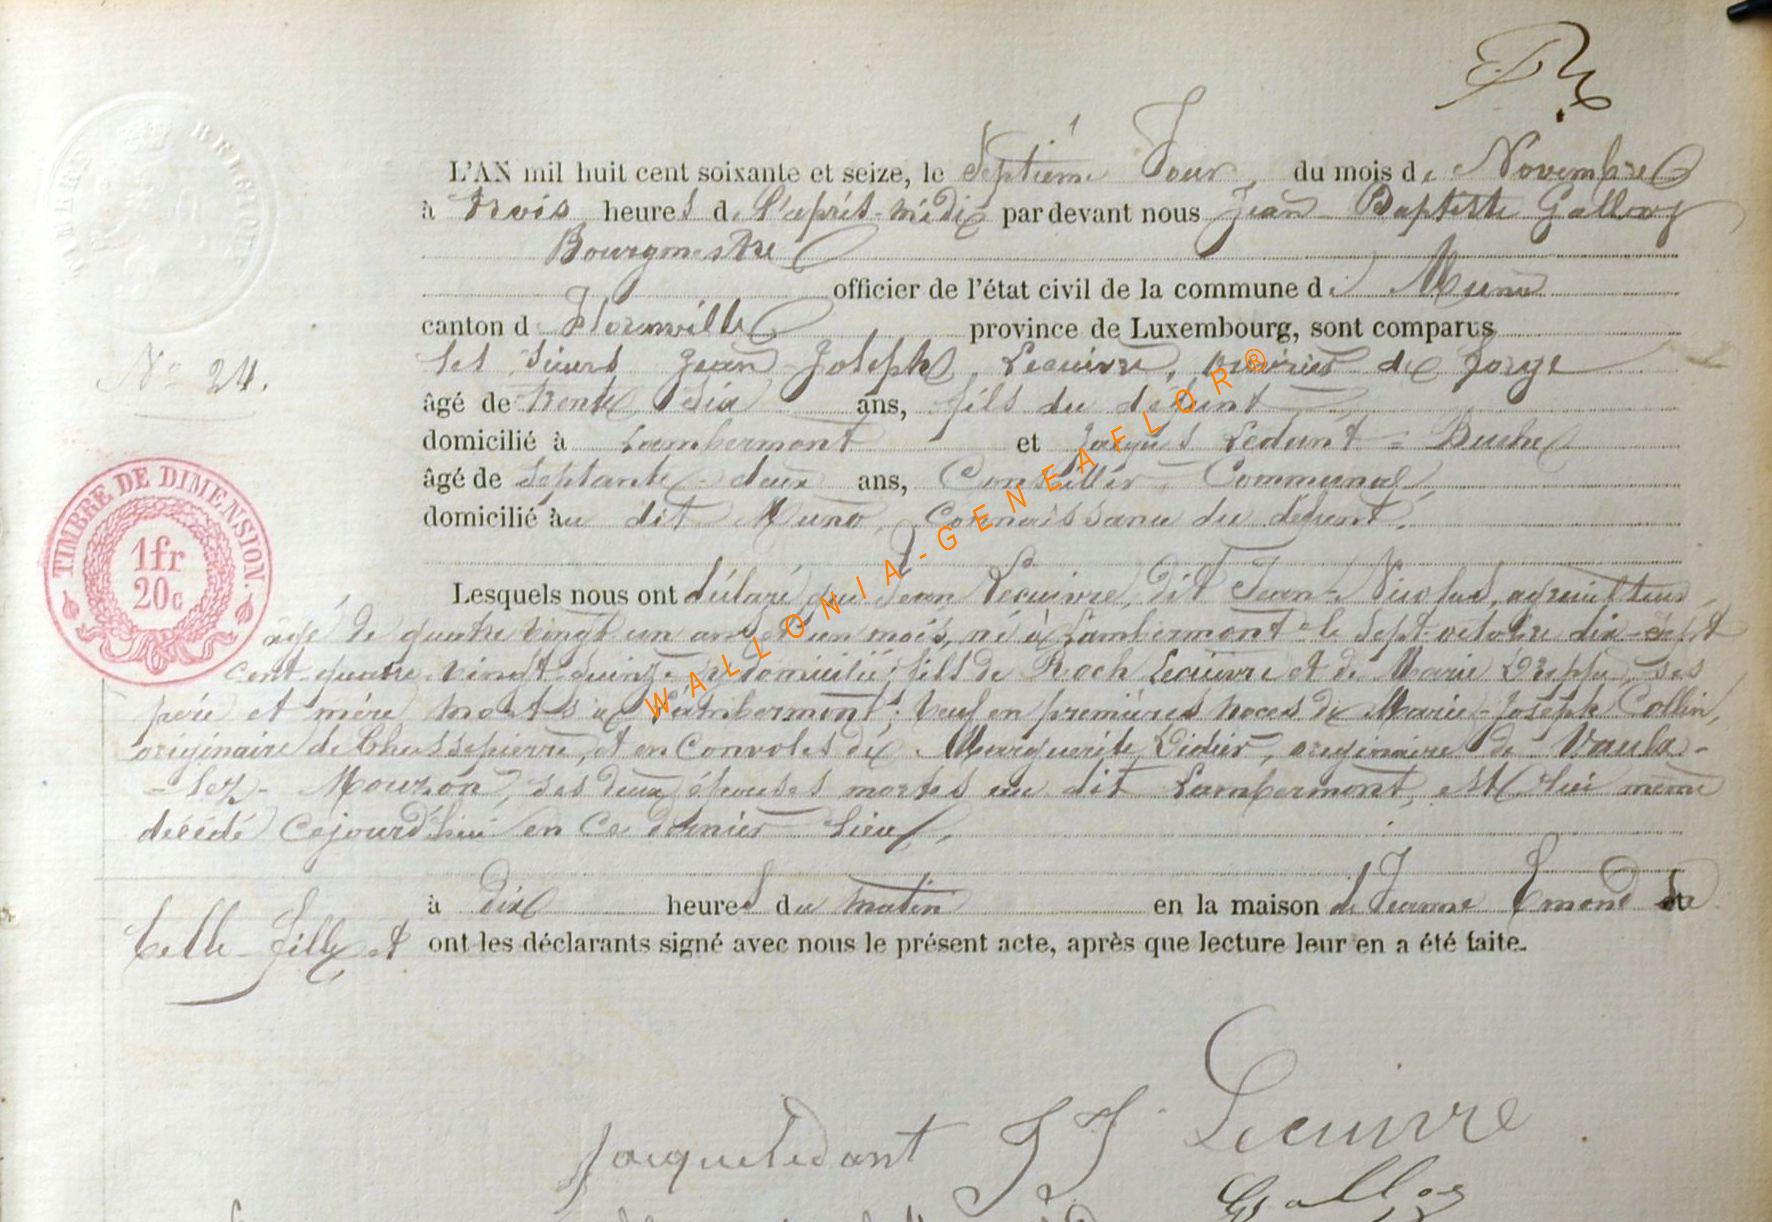 L'AN mil huit cent soixante et seize, le Septième Jour, du mois de Novembre
à trois heures de l'après-midi par devant nous Jean-Baptiste Galloy
Bourgmestre
officier de l'état civil de la commune de Muno
canton de Florenville province de Luxembourg, sont comparus
N° 24.
les sieurs Jean-Joseph Lecuivre, ouvrier de forge
âgé de trente six ans, fils du défunt
domicilié à Lambermont et Jacques Ledant =
âgé de septante-deux ans, Conseiller-Communal,
domicilié au dit Muno, connaissance du défunt.
TIMBRE DE DIMENSION.
1fr
20c
Lesquels nous ont déclaré que Jean Lecuivre, dit Jean-Nicolas, agriculteur,
âgé de quatre vingt un ans et un mois, né à Lambermont le sept octobre dix-sept
cent quatre vingt-quinze y domicilié; fils de Roch Lecuivre et de Marie ses
père et mère morts à Lambermont; veuf en premières noces de Marie-Joseph Collin,
originaire de Chassepierre, et en convoles de Marguerite Didier, originaire de Vaulx-
-lez-Mouzon, ses deux épouses mortes au dit Lambermont, est lui même
décédé cejourd'hui en ce dernier lieu,
à dix heures du matin en la maison de Jeanne Emond sa
belle-fille et ont les déclarants signé avec nous le présent acte, après que lecture leur en a été faite.
Jacque Ledant JJ Lecuivre
Galloy
WALLONIA-GENEAFLOR®